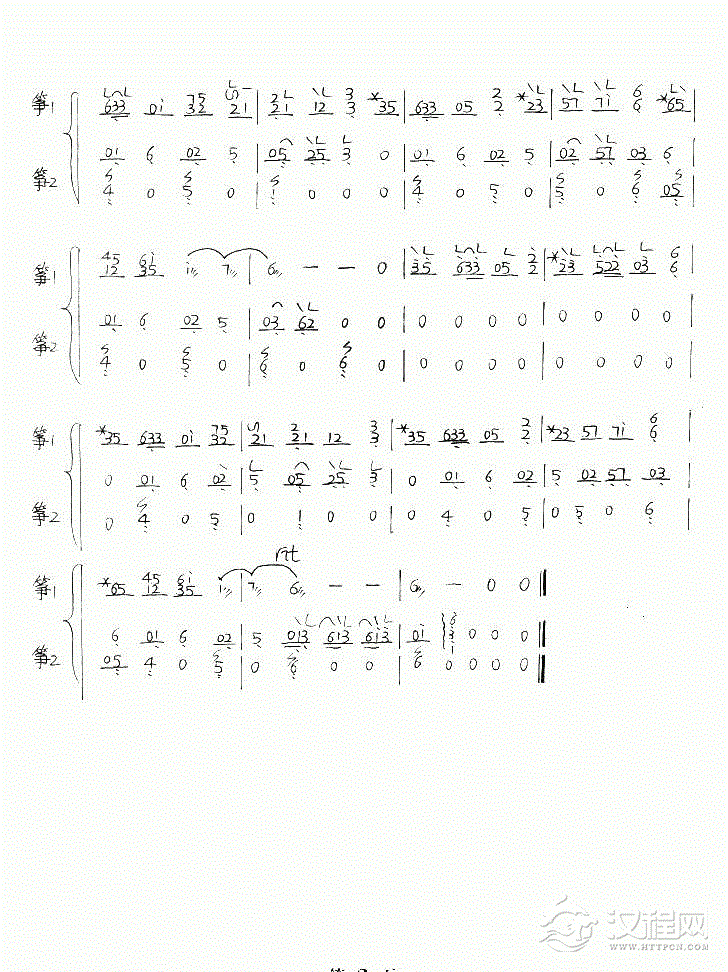 筝1 633 01 75 32 21 | 2 21 12 3 3 *35 | 633 05 2 2 *23 | 57 71 6 6 *65 |
筝2 01 6 02 5 | 05 25 3 0 | 01 6 02 5 | 02 57 03 6 |
4 0 5 0 | 1 0 0 0 | 4 0 5 0 | 5 0 6 05 |
筝1 45 12 61 35 1 7 | 6 — — 0 | 35 633 05 2 2 | *23 522 03 6 6 |
筝2 01 6 02 5 | 03 62 0 0 | 0 0 0 0 | 0 0 0 0 |
4 0 5 0 | 6 0 6 0 | 0 0 0 0 | 0 0 0 0 |
筝1 *35 633 01 75 32 | 21 2 21 12 3 3 | *35 633 05 2 2 | *23 57 71 6 6 |
筝2 0 01 6 02 | 5 05 25 3 | 0 01 6 02 | 5 02 57 03 |
0 4 0 5 | 0 1 0 0 | 0 4 0 5 | 0 5 0 6 |
rit
筝1 *65 45 12 61 35 1 | 7 6 — — | 6 — 0 0
筝2 6 01 6 02 | 5 013 613 613 | 01 6 3 1 0 0 0
05 4 0 5 | 0 6 0 0 | 6 0 0 0
汉程网
WWW.HTTPCN.COM